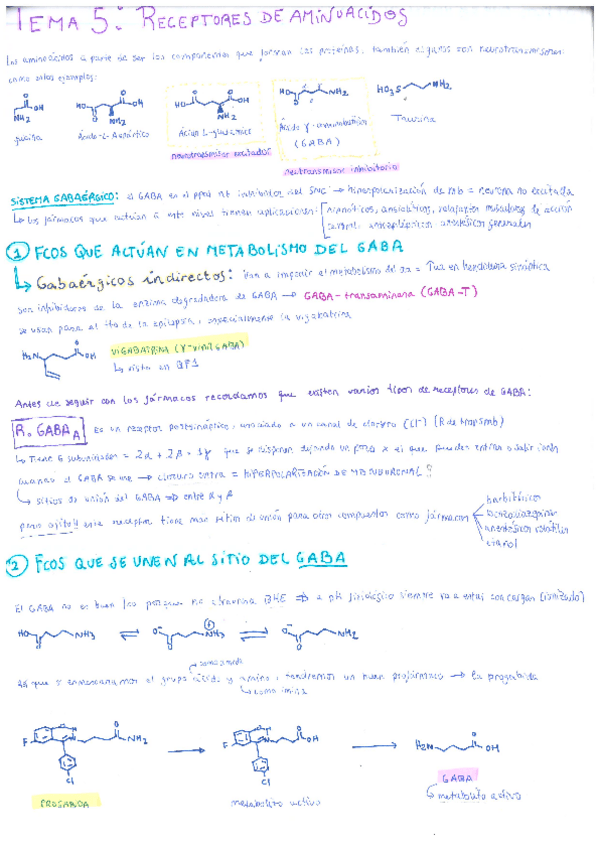 TEMA 5: RECEPTORES DE AMINOÁCIDOS
Los aminoácidos a parte de ser los componentes que forman las proteínas, también algunos son neurotransmisores
como estos ejemplos:
glicina
Ácido-L-Aspártico
Ácido L-glutámico
Ácido γ-aminobutírico
(GABA)
Taurina
neurotransmisor excitador
neurotransmisor inhibitorio
SISTEMA GABAÉRGICO: el GABA es el ppal nt inhibidor del SNC → hiperpolarización de mb = neurona no excitada
↳ los fármacos que actúan a este nivel tienen aplicaciones: anestésicos generales
1 FCOS QUE ACTÚAN EN METABOLISMO DEL GABA
↳ Gabaérgicos indirectos: Van a impedir el metabolismo del aa = ↑ en hendidura sináptica
son inhibidores de la enzima degradadora de GABA → GABA-transaminasa (GABA-T)
se usan para el tto de la epilepsia, especialmente la vigabatrina
VIGABATRINA (γ-vinil GABA)
Antes de seguir con los fármacos recordamos que existen varios tipos de receptores de GABA:
R. GABA A Es un receptor postsináptico, asociado a un canal de cloruro (Cl⁻)
↳ Tiene 5 subunidades = 2α + 2β + 1γ que se disponen dejando un poro x el que pueden entrar o salir iones
cuando el GABA se une → cloruro entra = HIPERPOLARIZACIÓN DE MB NEURONAL !!
↳ sitios de unión del GABA → entre α y β
este receptor tiene más sitios de unión para otros compuestos como fármacos
barbitúricos
benzodiazepinas
anestésicos volátiles
etanol
2 FCOS QUE SE UNEN AL SITIO DEL GABA
El GABA no es buen fco porque no atraviesa BHE ⇒ a pH fisiológico siempre va a estar con cargas (ionizado)
así que si enmascaramos el grupo ácido y amino, tendremos un buen profármaco → la progabida
↳ como imina
PROGABIDA
metabolito activo
GABA
↳ metabolito activo